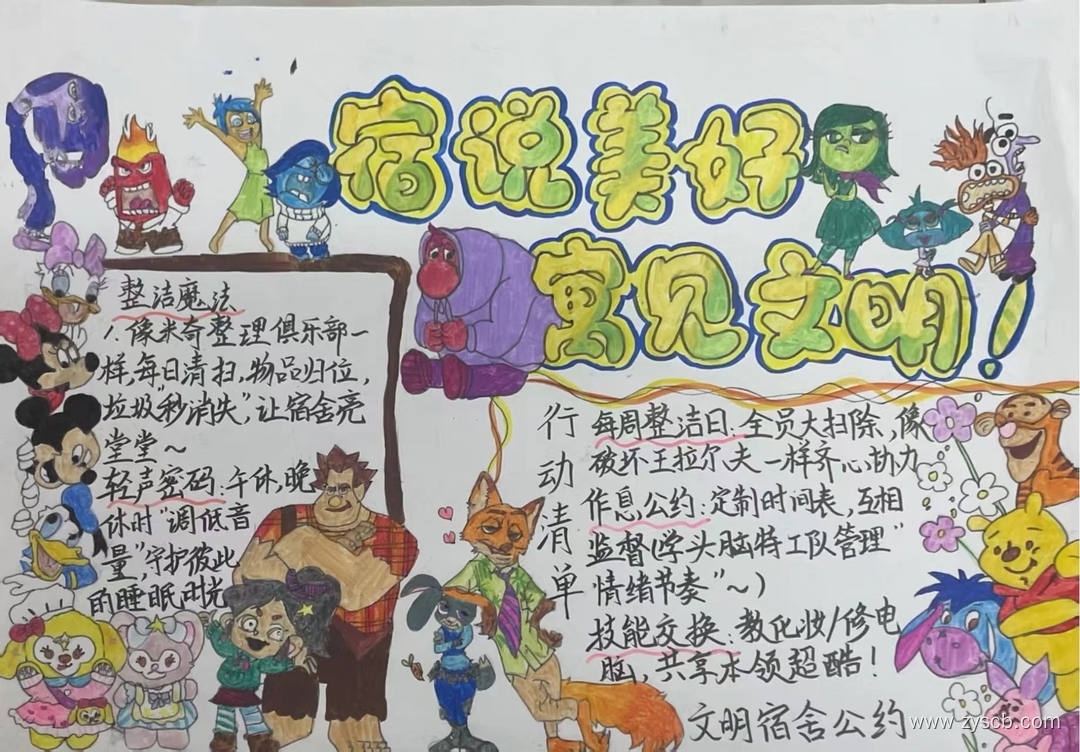 宿说美好
寓见文明!
整洁魔法
1.像米奇整理俱乐部一
样,每日清扫,物品归位,
垃圾"秒消失",让宿舍亮
堂堂~
轻声密码:午休,晚
休时"调低音
量",守护彼此
的睡眠时光
行动清单
每周整洁日:全员大扫除,像
破坏王拉尔夫一样齐心协力
作息公约:定制时间表,互相
监督(学头脑特工队管理"
情绪节奏"~)
技能交换:教化妆/修电
脑,共享本领超酷!
文明宿舍公约
www.zyscb.com